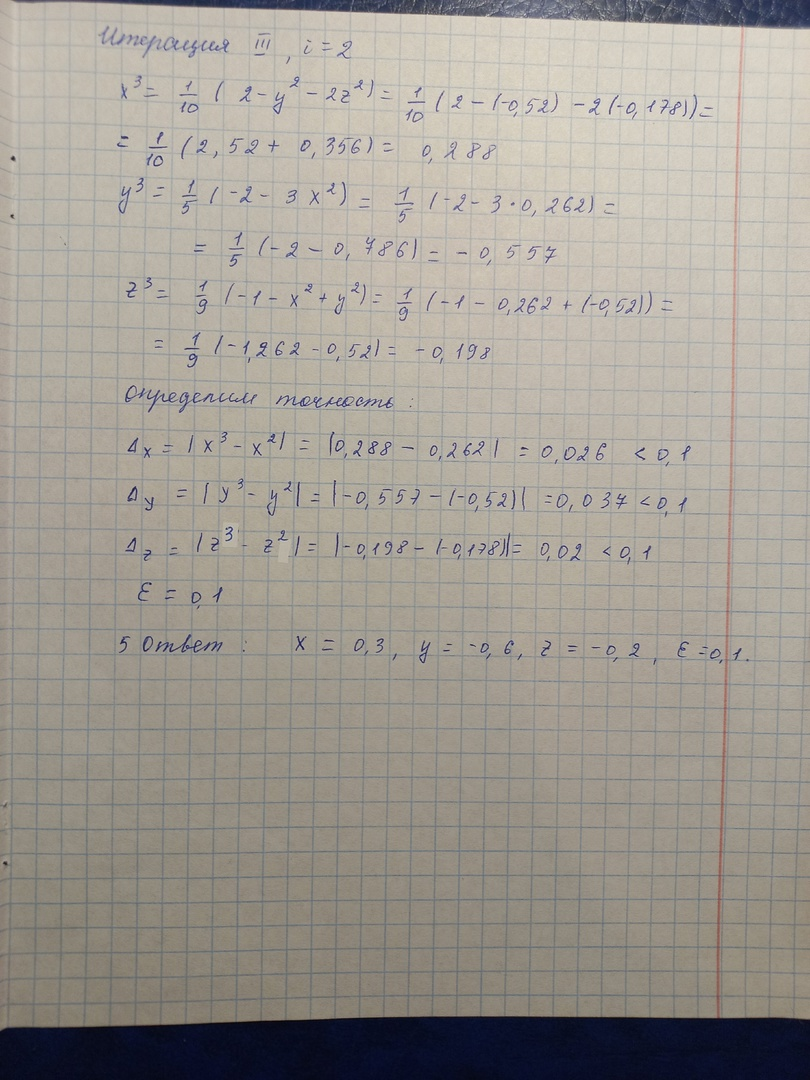 Итерация III, i = 2
x³ = 1/10 (2 - y² - 2z²) = 1/10 (2 - (-0,52) - 2(-0,178)) =
= 1/10 (2,52 + 0,356) = 0,288
y³ = 1/5 (-2 - 3x²) = 1/5 (-2 - 3·0,262) =
= 1/5 (-2 - 0,786) = -0,557
z³ = 1/9 (-1 - x² + y²) = 1/9 (-1 - 0,262 + (-0,52)) =
= 1/9 (-1,262 - 0,52) = -0,198
Определим точность:
Δx = |x³ - x²| = |0,288 - 0,262| = 0,026 < 0,1
Δy = |y³ - y²| = |-0,557 - (-0,52)| = 0,037 < 0,1
Δz = |z³ - z²| = |-0,198 - (-0,178)| = 0,02 < 0,1
ε = 0,1
5 Ответ: x = 0,3, y = -0,6, z = -0,2, ε = 0,1.